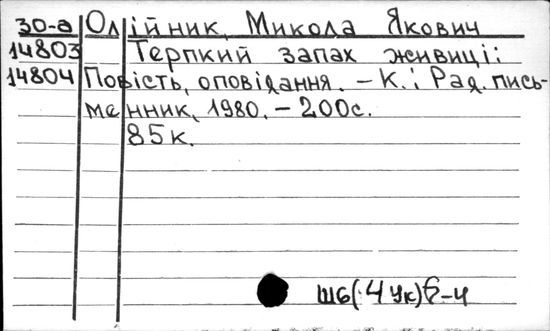 30-а Олійник, Микола Якович
14803 Терпкий запах живиці:
14804 Повість, оповідання. – К.: Рад. пись-
менник, 1980. – 200с.
85к.
Ш6(4Ук)6-4